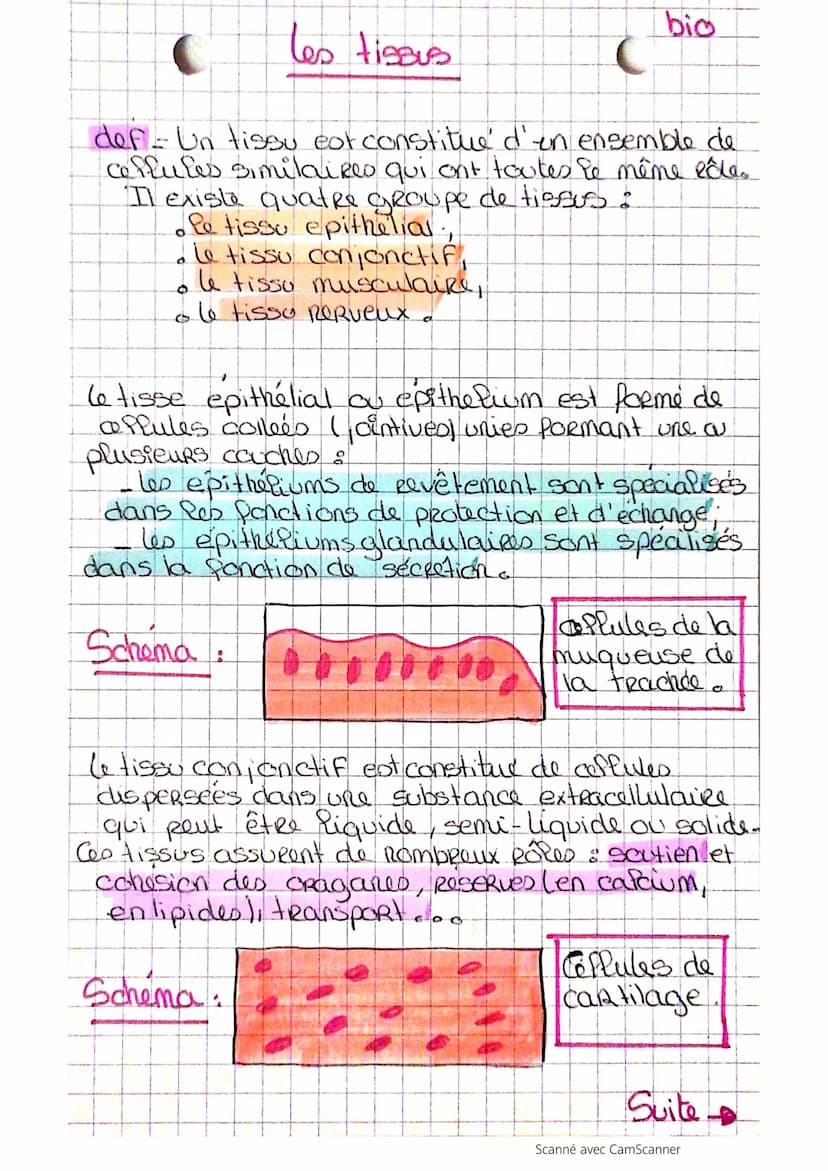 bio
Les tissus
def = Un tissu est constitué d'un ensemble de
cellules similaires qui ont toutes le même rôle.
Il existe quatre groupe de tissus :
• le tissu epithélial ;,
• le tissu conjonctif,
• le tissu musculaire,
• le tissu nerveux .
Le tisse épithélial ou épithelium est formé de
cellules collées (jointives) unies formant une ou
plusieurs couches :
- les epithéliums de revêtement sont spécialisés
dans les fonctions de protection et d'échange ;
- les épithéliums glandulaires sont spéalisés
dans la fonction de sécrétion .
Schéma :
cellules de la
muqueuse de
la trachée .
Le tissu conjonctif est constitué de cellules
dispersées dans une substance extracellulaire
qui peut être liquide , semi-liquide ou solide.
Ces tissus assurent de nombreux rôles : soutien et
cohésion des oraganes, réserves (en calcium,
en lipides), transport ...
Schéma :
Cellules de
cartilage .
Suite →
Scanné avec CamScanner